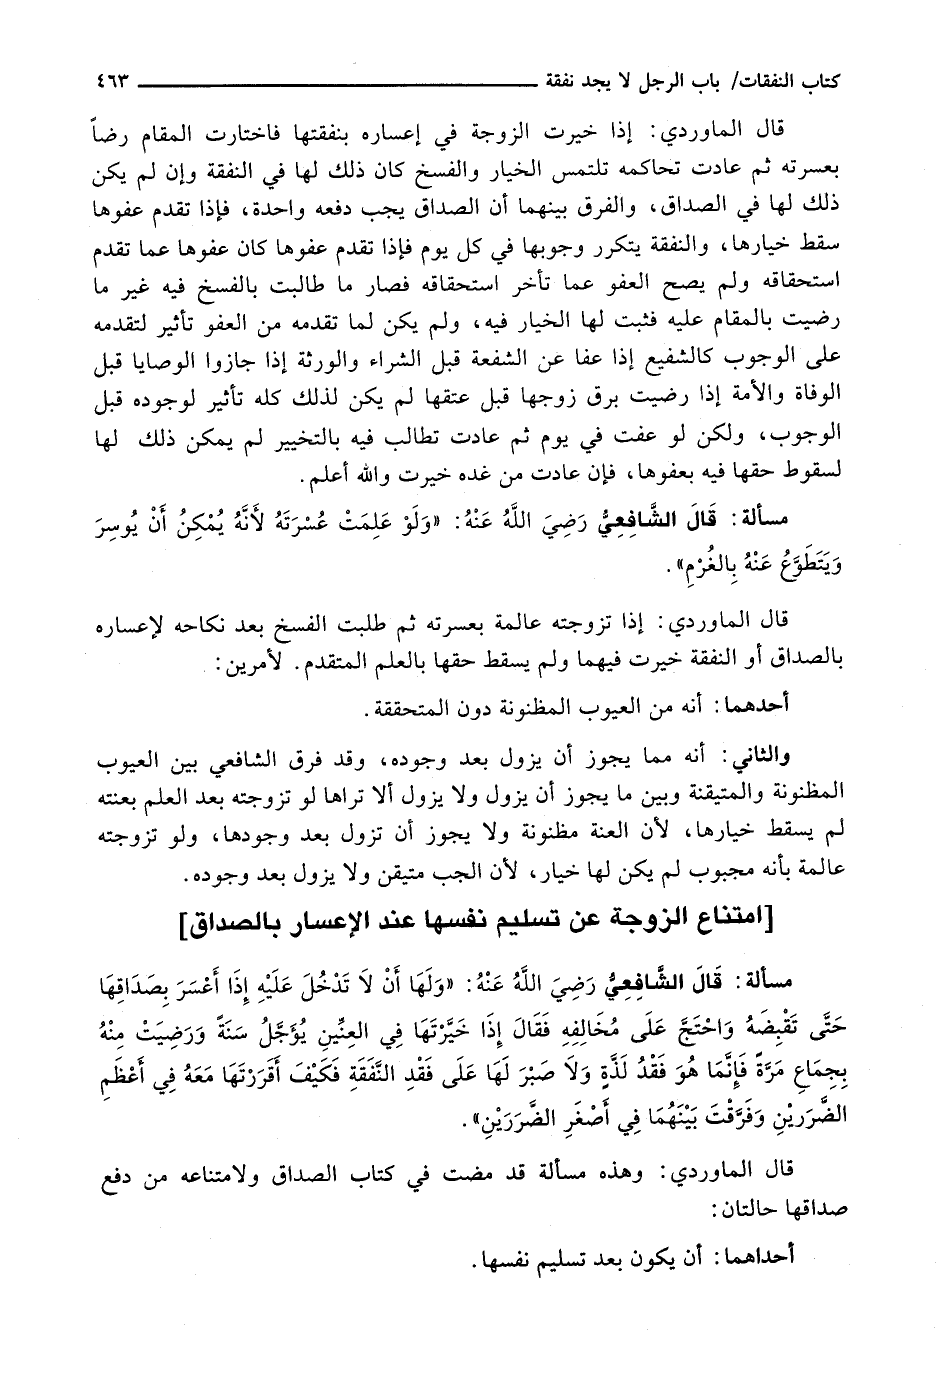 كتاب النفقات/ باب الرجل لا يجد نفقة ٤٦٣
قال الماوردي: إذا خيرت الزوجة في إعساره بنفقتها فاختارت المقام رضاً
بعسرته ثم عادت تحاكمه تلتمس الخيار والفسخ كان ذلك لها في النفقة وإن لم يكن
ذلك لها في الصداق، والفرق بينهما أن الصداق يجب دفعه واحدة، فإذا تقدم عفوها
سقط خيارها، والنفقة يتكرر وجوبها في كل يوم فإذا تقدم عفوها كان عفوها عما تقدم
استحقاقه ولم يصح العفو عما تأخر استحقاقه فصار ما طالبت بالفسخ فيه غير ما
رضيت بالمقام عليه فثبت لها الخيار فيه، ولم يكن لما تقدمه من العفو تأثير لتقدمه
على الوجوب كالشفيع إذا عفا عن الشفعة قبل الشراء والورثة إذا جازوا الوصايا قبل
الوفاة والأمة إذا رضيت برق زوجها قبل عتقها لم يكن لذلك كله تأثير لوجوده قبل
الوجوب، ولكن لو عفت في يوم ثم عادت تطالب فيه بالتخيير لم يمكن ذلك لها
لسقوط حقها فيه بعفوها، فإن عادت من غده خيرت والله أعلم.
مسألة: قَالَ الشَّافِعِيُّ رَضِيَ اللَّهُ عَنْهُ: «وَلَوْ عَلِمَتْ عُسْرَتَهُ لأَنَّهُ يُمْكِنُ أَنْ يُوسِرَ
وَيَتَطَوَّعُ عَنْهُ بِالغُرْمِ».
قال الماوردي: إذا تزوجته عالمة بعسرته ثم طلبت الفسخ بعد نكاحه لإعساره
بالصداق أو النفقة خيرت فيهما ولم يسقط حقها بالعلم المتقدم. لأمرين:
أحدهما: أنه من العيوب المظنونة دون المتحققة.
والثاني: أنه مما يجوز أن يزول بعد وجوده، وقد فرق الشافعي بين العيوب
المظنونة والمتيقنة وبين ما يجوز أن يزول ولا يزول ألا تراها لو تزوجته بعد العلم بعنته
لم يسقط خيارها، لأن العنة مظنونة ولا يجوز أن تزول بعد وجودها، ولو تزوجته
عالمة بأنه مجبوب لم يكن لها خيار، لأن الجب متيقن ولا يزول بعد وجوده.
[امتناع الزوجة عن تسليم نفسها عند الإعسار بالصداق]
مسألة: قَالَ الشَّافِعِيُّ رَضِيَ اللَّهُ عَنْهُ: «وَلَهَا أَنْ لَا تَدْخُلَ عَلَيْهِ إِذَا أَعْسَرَ بِصَدَاقِهَا
حَتَّى تَقْبِضَهُ وَاحْتَجَّ عَلَى مُخَالِفِهِ فَقَالَ إِذَا خَيَّرْتَهَا فِي العِنِّينِ يُؤَجَّلُ سَنَةً وَرَضِيَتْ مِنْهُ
بِجِمَاعِ مَرَّةً فَإِنَّمَا هُوَ فَقْدُ لَذَّةٍ وَلَا صَبْرَ لَهَا عَلَى فَقْدِ النَّفَقَةِ فَكَيْفَ أَقَرَرْتَهَا مَعَهُ فِي أَعْظَمِ
الضَّرَرَيْنِ وَفَرَّقْتَ بَيْنَهُمَا فِي أَصْغَرِ الضَّرَرَيْنِ».
قال الماوردي: وهذه مسألة قد مضت في كتاب الصداق ولامتناعه من دفع
صداقها حالتان:
أحداهما: أن يكون بعد تسليم نفسها.